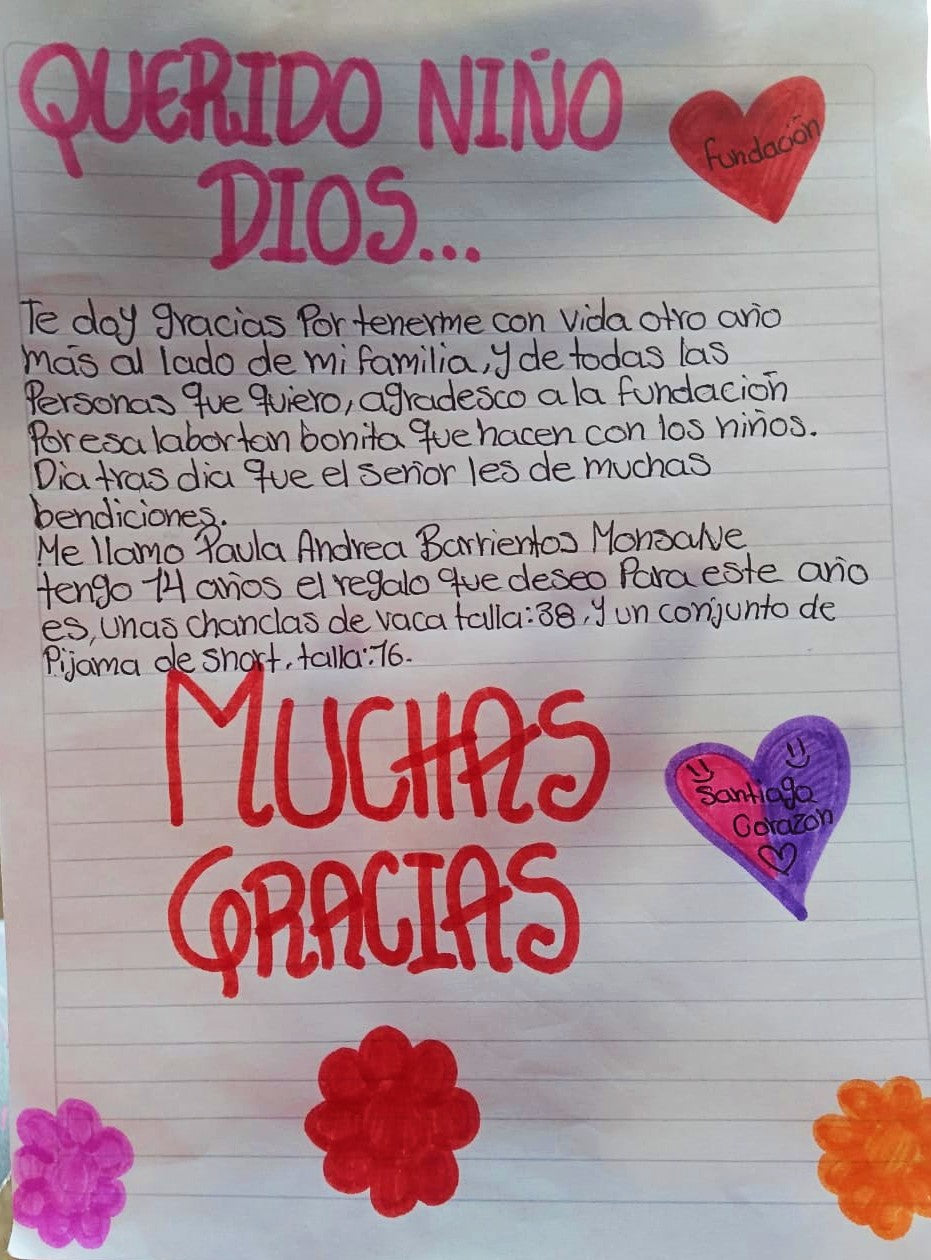 QUERIDO NIÑO
DIOS...
fundación
Te doy gracias Por tenerme con vida otro año
más al lado de mi familia, y de todas las
Personas que quiero, agradesco a la fundación
Por esa labor tan bonita que hacen con los niños.
Dia tras dia que el señor les de muchas
bendiciones.
Me llamo Paula Andrea Barrientos Monsalve
tengo 14 años el regalo que deseo Para este año
es, unas chanclas de vaca talla:38, y un conjunto de
Pijama de short, talla:16.
MUCHAS
GRACIAS
Santiago
Corazon